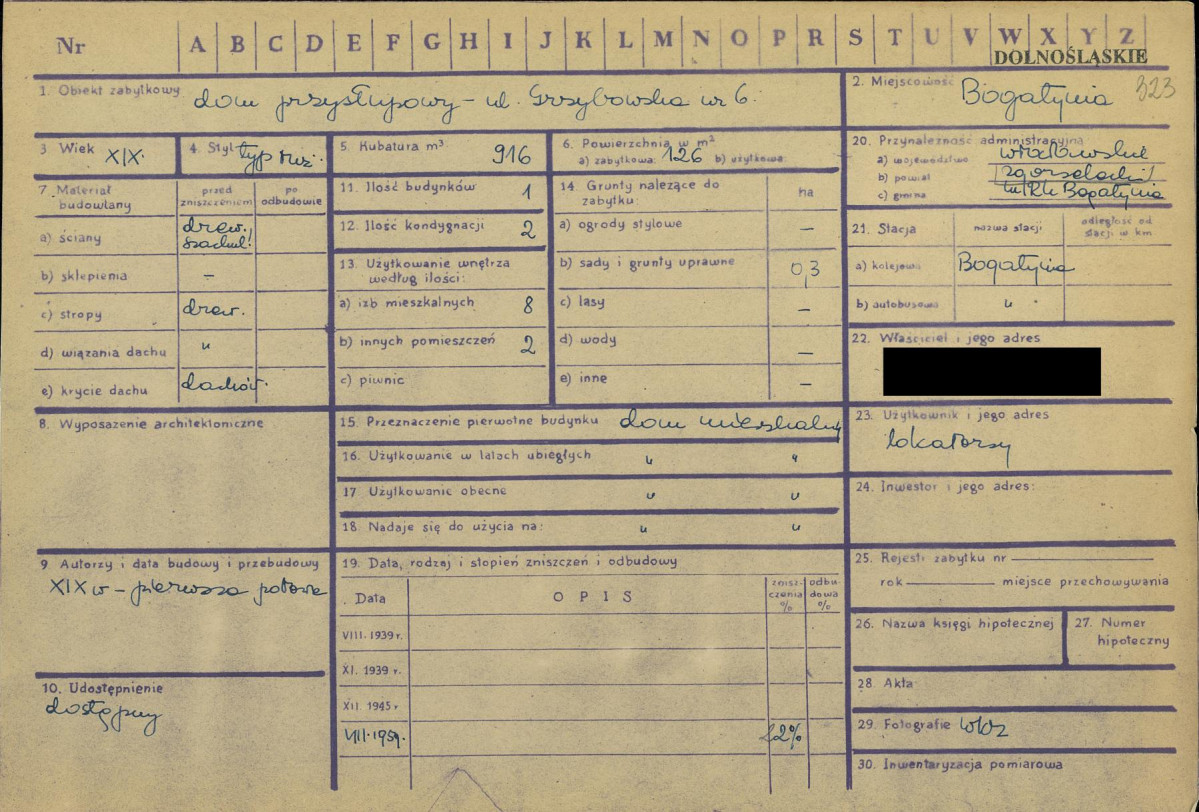 Nr A B C D E F G H I J K L M N O P R S T U V W X Y Z
DOLNOŚLĄSKIE
323
1. Obiekt zabytkowy dom przysłupowy – ul. Grzybowska nr 6.
2. Miejscowość Bogatynia
3 Wiek XIX.
4. Styl
5. Kubatura m³ 916
6. Powierzchnia w m²
a) zabytkowa: 126 b) użytkowa:
7. Materiał budowlany
przed zniszczeniem
po odbudowie
a) ściany drew. szachul.
b) sklepienia –
c) stropy drew.
d) wiązania dachu "
e) krycie dachu dachów.
8. Wyposażenie architektoniczne
9 Autorzy i data budowy i przebudowy
XIX w – pierwsza połowa
10. Udostępnienie
dostępny
11. Ilość budynków 1
12. Ilość kondygnacji 2
13. Użytkowanie wnętrza
według ilości:
a) izb mieszkalnych 8
b) innych pomieszczeń 2
c) piwnic
14. Grunty należące do
zabytku:
ha
a) ogrody stylowe –
b) sady i grunty uprawne 0,3
c) lasy –
d) wody –
e) inne –
15. Przeznaczenie pierwotne budynku dom mieszkalny
16. Użytkowanie w latach ubiegłych " "
17 Użytkowanie obecne " "
18. Nadaje się do użycia na: " "
19. Data, rodzaj i stopień zniszczeń i odbudowy
Data
OPIS
znisz-
czenia
%
odbu-
dowa
%
VIII. 1939 r.
XI. 1939 r.
XII. 1945 r
VIII. 1959.
20. Przynależność administracyjna
a) województwo wrocławskie
b) powiat zgorzelecki
c) gmina Bogatynia
21. Stacja
nazwa stacji
odległość od
stacji w km
a) kolejowa Bogatynia
b) autobusowa "
22. Właściciel i jego adres
23. Użytkownik i jego adres
lokatorzy
24. Inwestor i jego adres:
25. Rejestr zabytku nr
rok miejsce przechowywania
26. Nazwa księgi hipotecznej
27. Numer
hipoteczny
28. Akta
29. Fotografie
30. Inwentaryzacja pomiarowa